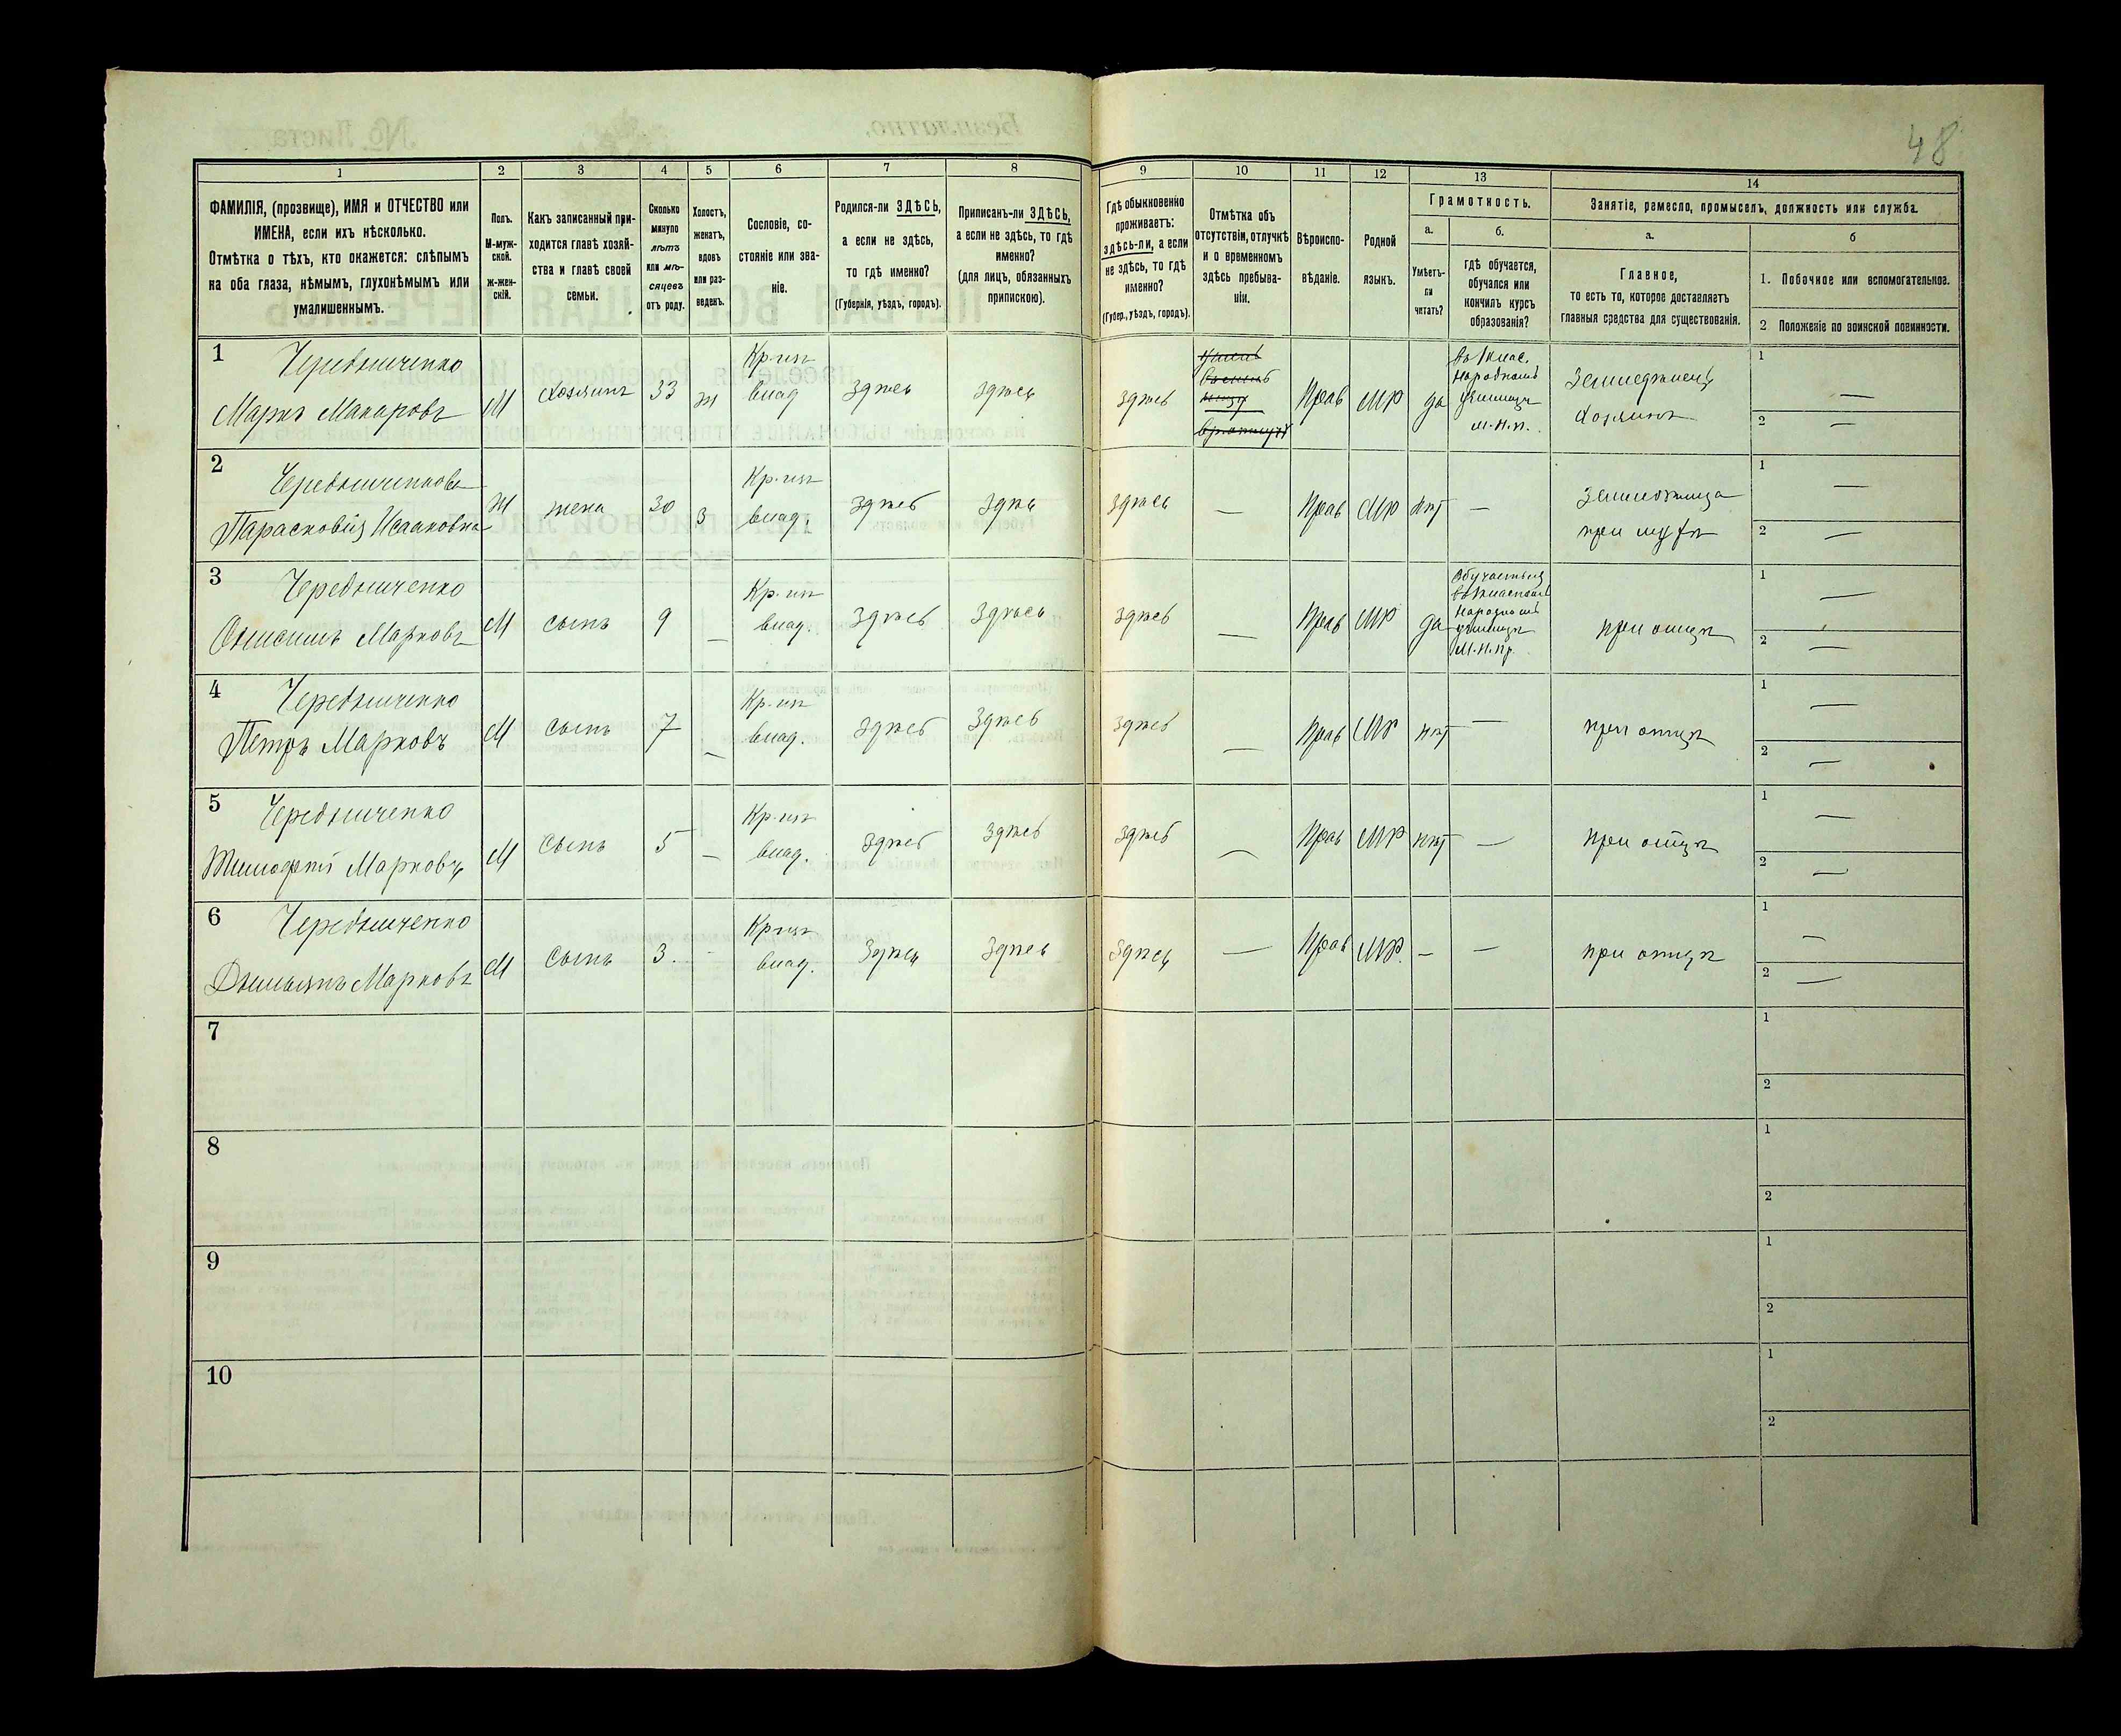 48
1
2
3
4
5
6
7
8
9
10
11
12
13
14
ФАМИЛІЯ, (прозвище), ИМЯ и ОТЧЕСТВО или
ИМЕНА, если ихъ нѣсколько.
Отмѣтка о тѣхъ, кто окажется: слѣпымъ
на оба глаза, нѣмымъ, глухонѣмымъ или
умалишеннымъ.
Полъ.
М-муж-
ской.
ж-жен-
скій.
Какъ записанный при-
ходится главѣ хозяй-
ства и главѣ своей
семьи.
Сколько
минуло
лѣтъ
или мѣ-
сяцевъ
отъ роду.
Холостъ,
женатъ,
вдовъ
или раз-
веденъ.
Сословіе, со-
стояніе или зва-
ніе.
Родился-ли ЗДѢСЬ,
а если не здѣсь,
то гдѣ именно?
(Губернія, уѣздъ, городъ).
Приписанъ-ли ЗДѢСЬ,
а если не здѣсь, то гдѣ
именно?
(для лицъ, обязанныхъ
припискою).
Гдѣ обыкновенно
проживаетъ:
здѣсь-ли, а если
не здѣсь, то гдѣ
именно?
(Губер., уѣздъ, городъ).
Отмѣтка объ
отсутствіи, отлучкѣ
и о временномъ
здѣсь пребыва-
ніи.
Вѣроиспо-
вѣданіе.
Родной
языкъ.
Грамотность.
а.
Умѣетъ-
ли
читать?
б.
гдѣ обучается,
обучался или
кончилъ курсъ
образованія?
Занятіе, ремесло, промыселъ, должность или служба.
а.
Главное,
то есть то, которое доставляетъ
главныя средства для существованія.
б
1. Побочное или вспомогательное.
2 Положеніе по воинской повинности.
1
Чередниченко
Маркъ Макаровъ
М
хозяинъ
33
ж
Кр-нъ
влад
здѣсь
здѣсь
здѣсь
Прав
МР
да
въ 1 клас.
народномъ
училищѣ
М.Н.П.
Земледѣлецъ
Хозяинъ
1 —
2 —
2
Чередниченкова
Парасковія Исааковна
Ж
жена
30
З
Кр-нъ
влад.
здѣсь
здѣсь
здѣсь
—
Прав
МР
нѣт
—
при мужѣ
1 —
2 —
3
Чередниченко
Марковъ
М
сынъ
9
—
Кр-нъ
влад.
здѣсь
здѣсь
здѣсь
—
Прав
МР
да
Обучается
народномъ
училищѣ
М.Н.Пр.
при отцѣ
1 —
2 —
4
Чередниченко
Петръ Марковъ
М
сынъ
7
—
Кр-нъ
влад.
здѣсь
здѣсь
здѣсь
—
Прав
МР
нѣт
—
при отцѣ
1 —
2 —
5
Чередниченко
Тимофѣй Марковъ
М
сынъ
5
—
Кр-нъ
влад.
здѣсь
здѣсь
здѣсь
—
Прав
МР
нѣт
—
при отцѣ
1 —
2 —
6
Чередниченко
Демьянъ Марковъ
М
сынъ
3.
-
Кр-нъ
влад.
здѣсь
здѣсь
здѣсь
—
Прав
МР.
—
—
при отцѣ
1 —
2 —
7
1
2
8
1
2
9
1
2
10
1
2